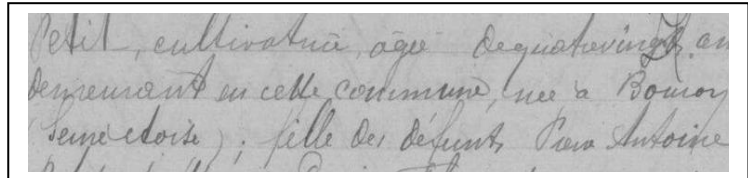 Petit, cultivatrice, âgée de quatrevingt an
demeurant en cette commune, née à Bouray
(Seine et oise); fille des défunts Pierre Antoine